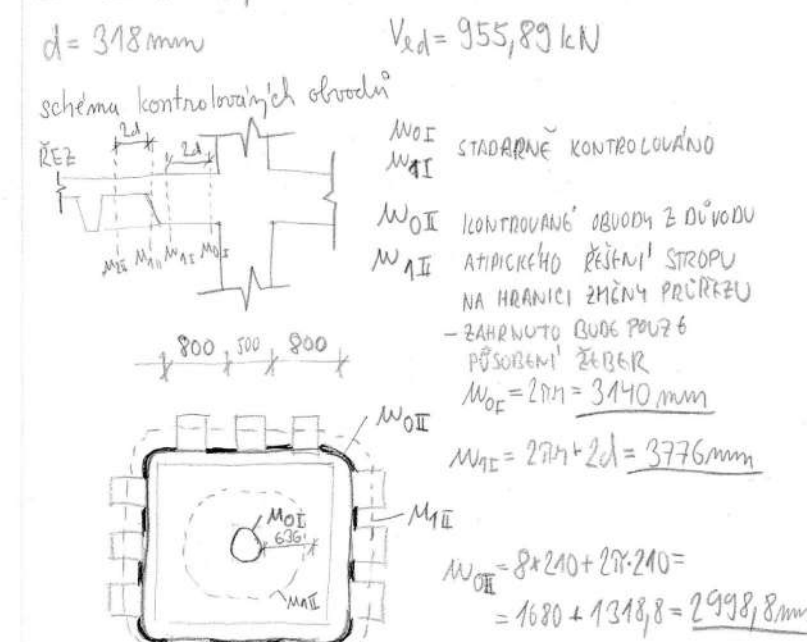 d = 318 mm
Ved = 955,89 kN
schéma kontrolovaných obvodů
ŘEZ
2d
2d
u1II u1II u1I u0I
u0I
u1I
STADARNĚ KONTROLOVÁNO
u0II KONTROVANÉ OBVODY Z DŮVODU
u1II ATIPICKÉHO ŘEŠENÍ STROPU
NA HRANICI ZMĚNY PRŮŘEZU
- ZAHRNUTO BUDE POUZE
PŮSOBENÍ ŽEBER
800 500 800
u0I = 2πr = 3140 mm
u1I = 2πr + 2d = 3776 mm
u0II
u1II
u0I
636
u1I
u0II = 8*210 + 2π·210 =
= 1680 + 1318,8 = 2998,8 mm